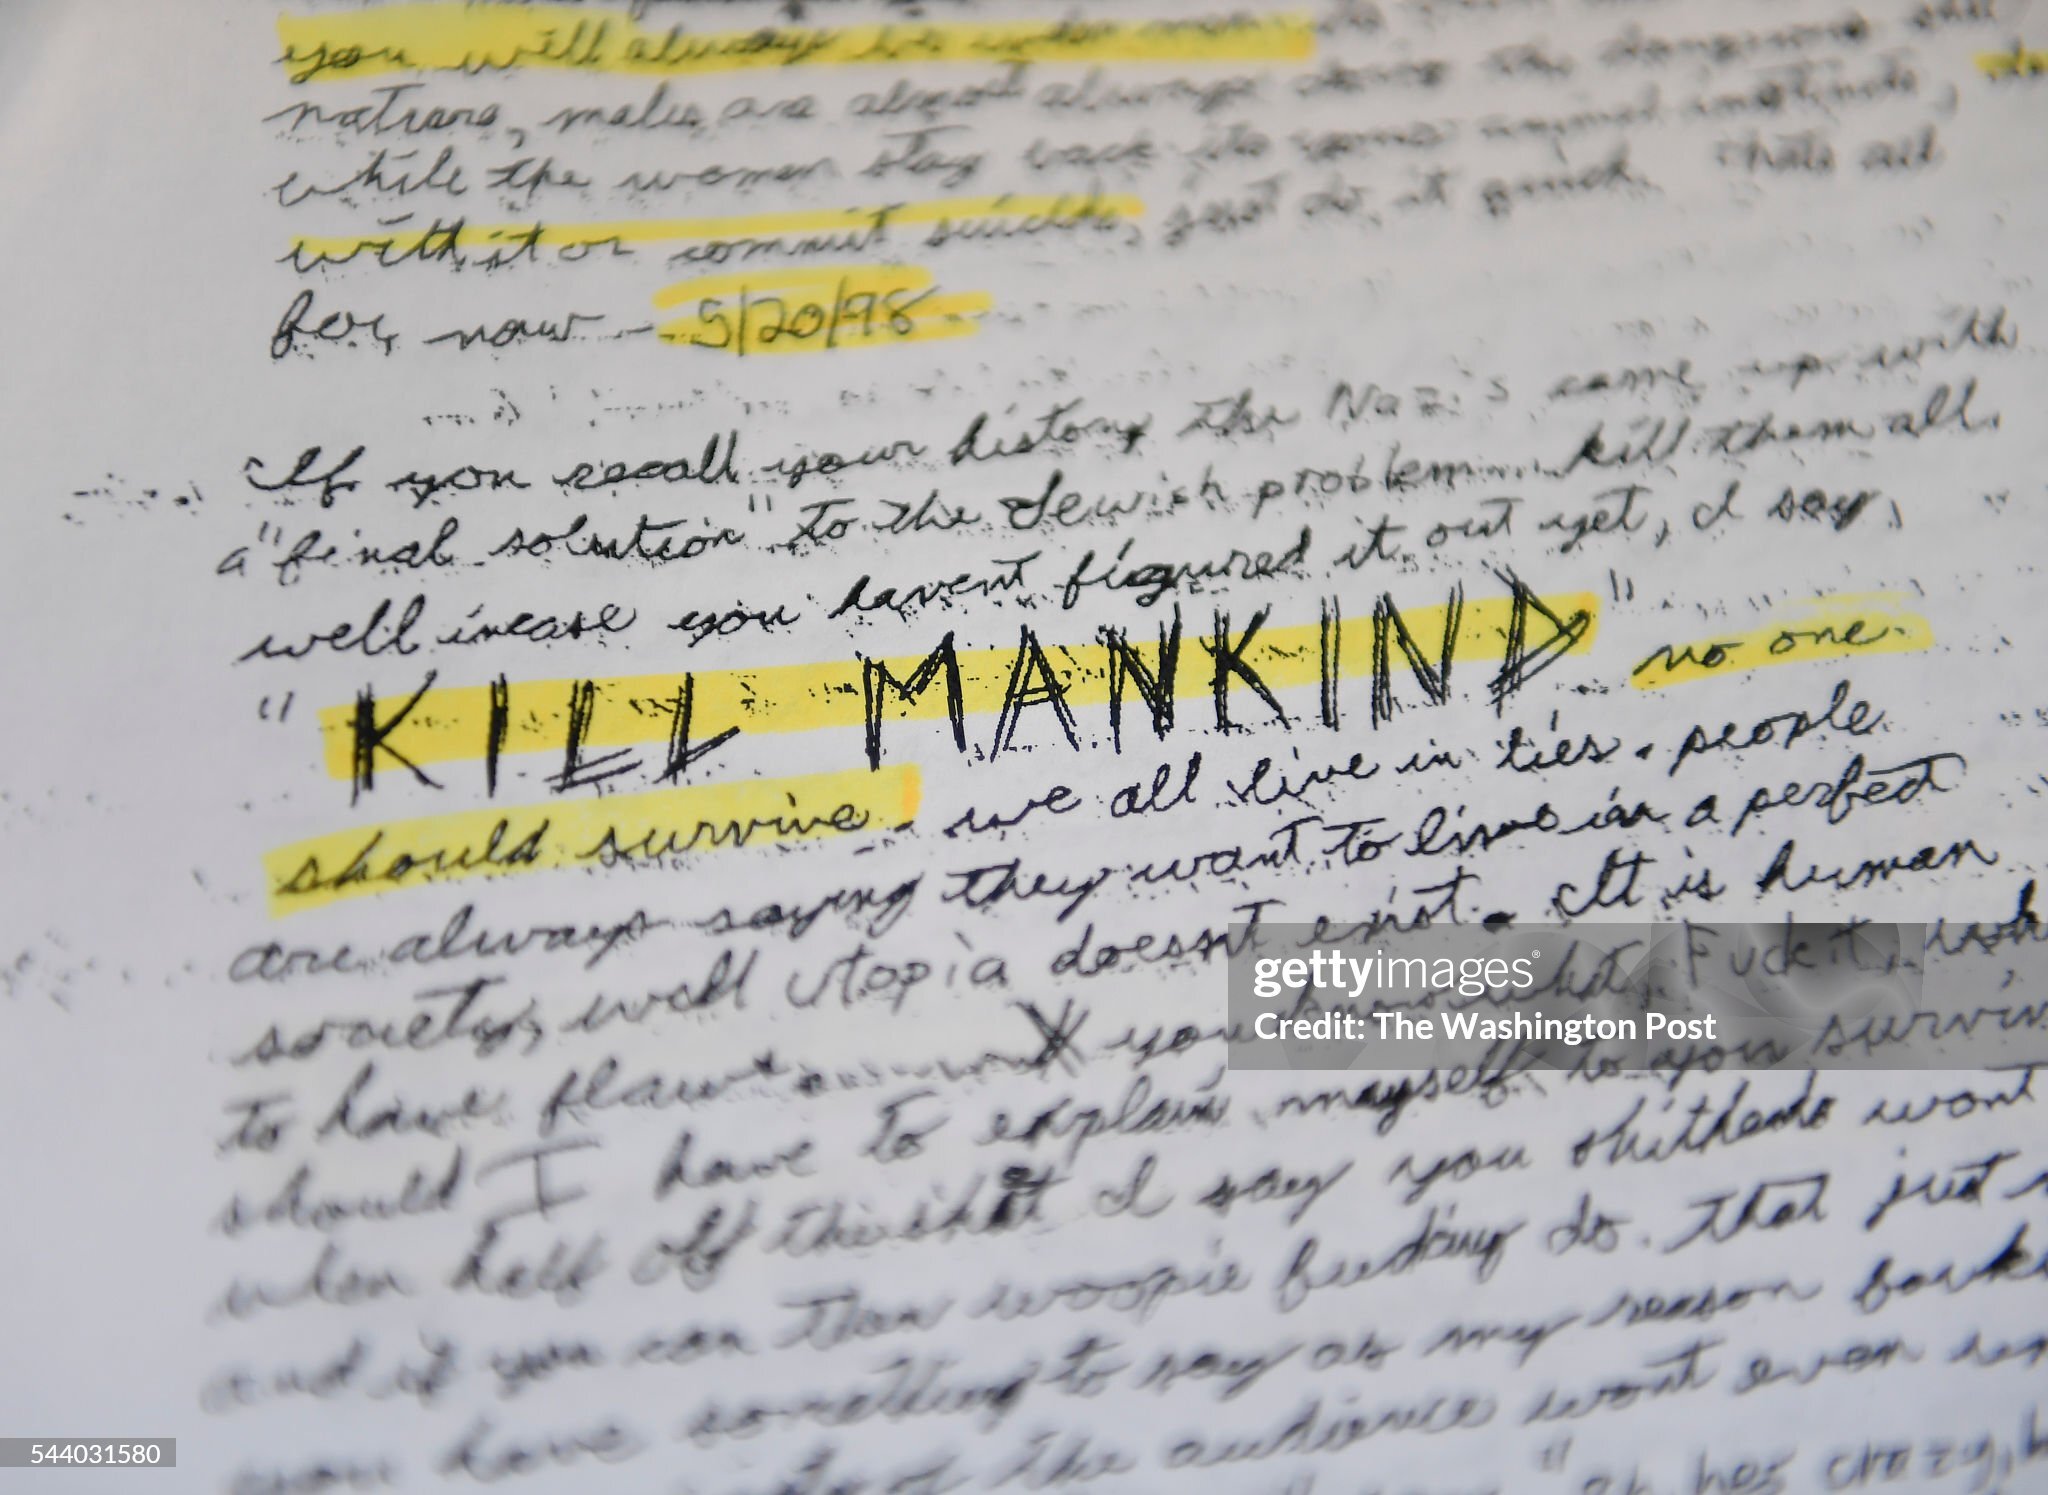 you will always be under
nature, males are almost always doing the dangerous
while the women stay back its some animal instincts,
with it or commit suicide, just do it quick. Thats all
for now - 5/20/98
"If you recall your history the Nazis came up with
a "final solution" to the Jewish problem... kill them all.
well incase you havent figured it out yet, I say,
"KILL MANKIND" no one
should survive. we all live in lies. people
are always saying they want to live in a perfect
society, well utopia doesnt exist. It is human
to have flaws. you know what, Fuck it,
should I have to explain myself to you
when half of the shit I say you shitheads wont
and if you can then woopie fucking do. that just
you have something to say as my reason
the audience wont even
crazy,
gettyimages®
Credit: The Washington Post
544031580